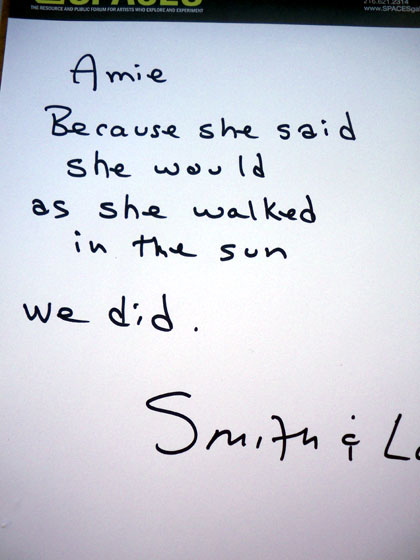 SPACES
THE RESOURCE AND PUBLIC FORUM FOR ARTISTS WHO EXPLORE AND EXPERIMENT
216.621.2314
www.SPACESgal
Amie
Because she said
she would
as she walked
in the sun
we did.
Smith &